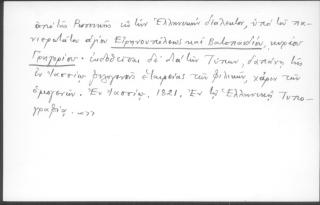 ἀπὸ τῆς Ρωσσικῆς εἰς τὴν Ἑλληνικὴν διάλεκτον, ὑπὸ τοῦ πα-
νιερωτάτου ἁγίου Εἰρηνουπόλεως καὶ Βατοπαιδίου, κυρίου
Γρηγορίου. ἐκδοθεῖσα δὲ διὰ τῶν Τύπων, δαπάνῃ τῆς
ἐν Ἰασσίῳ φιλογενοῦς ἑταιρείας τῶν φιλικῶν, χάριν τῶν
ὁμογενῶν. Ἐν Ἰασσίῳ. 1821. Ἐν τῇ Ἑλληνικῇ Τυπο-
γραφίᾳ. »»